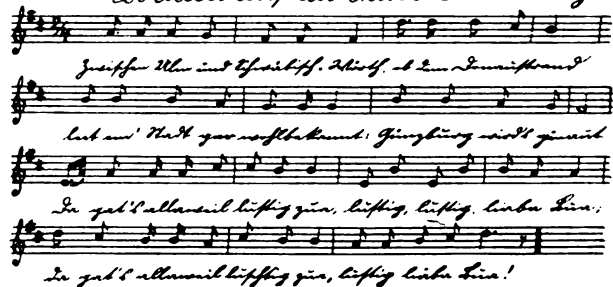 Zwischen Ulm und Schwäbisch-Wörth, ob dem Donaustrand
leit en' Stadt gar wohlbekannt: Günzburg wird's genannt
Da gat's allaweil lustig zua, lustig, lustig, liaba Bua;
da gat's allaweil luschtig zua, lustig liaba Bua!